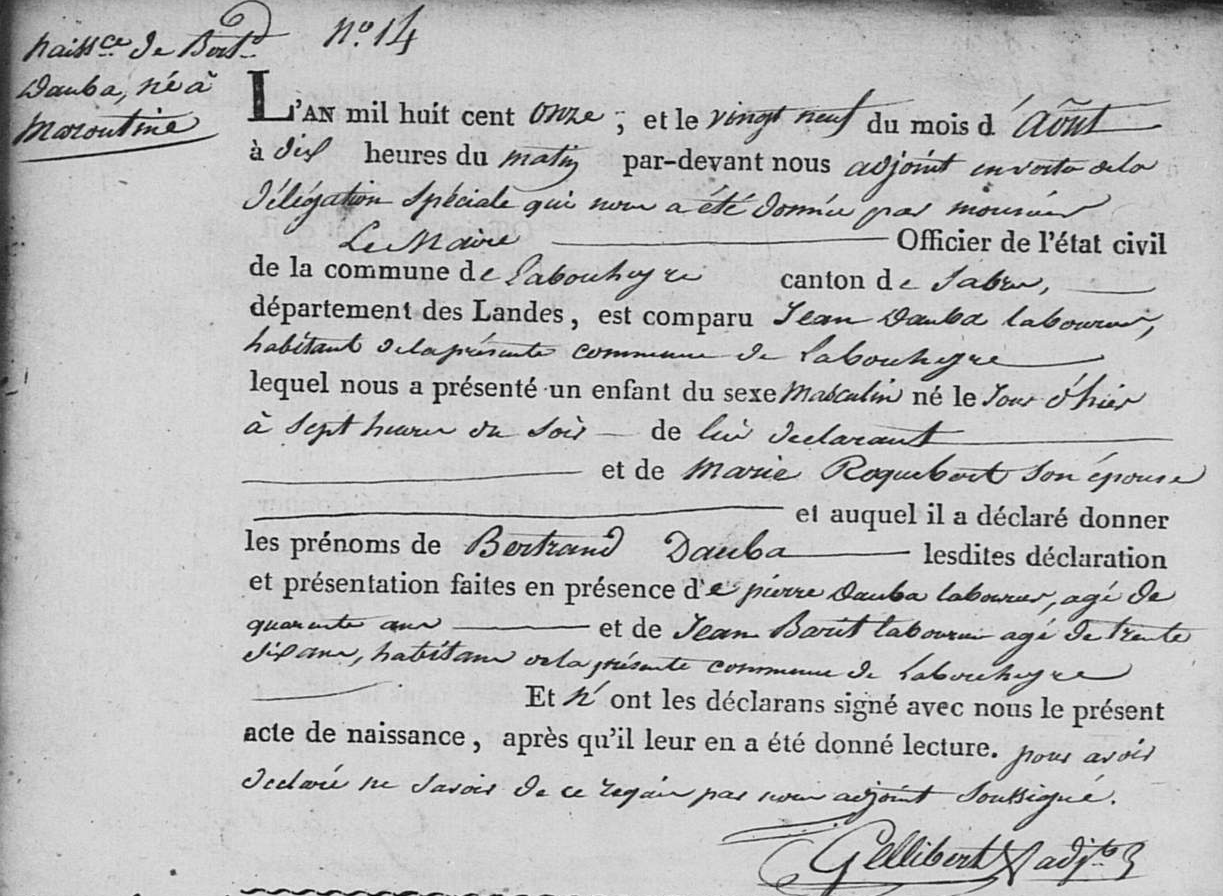 naissce de Bertd
Dauba, né à
Maroutine
n.o 14
L'AN mil huit cent onze ; et le vingt neuf du mois d'Août
à dix heures du matin par-devant nous adjoint en vertu de la
délégation spéciale qui nous a été donnée par monsieur
Le Maire Officier de l'état civil
de la commune de Labouheyre canton de Sabres,
département des Landes, est comparu Jean Dauba laboureur,
habitant de la présente commune de Labouheyre
lequel nous a présenté un enfant du sexe Masculin né le Jour d'hier
à sept heures du soir de lui declarant
et de Marie Roquebert son épouse
et auquel il a déclaré donner
les prénoms de Bertrand Dauba lesdites déclaration
et présentation faites en présence de pierre Dauba laboureur, agé de
quarante ans et de Jean Barit laboureur agé de trente
six ans, habitans de la présente commune de Labouheyre
Et n'ont les déclarans signé avec nous le présent
acte de naissance, après qu'il leur en a été donné lecture. pour avoir
declaré ne savoir de ce par nous adjoint soussigné.
Gellibert adjt